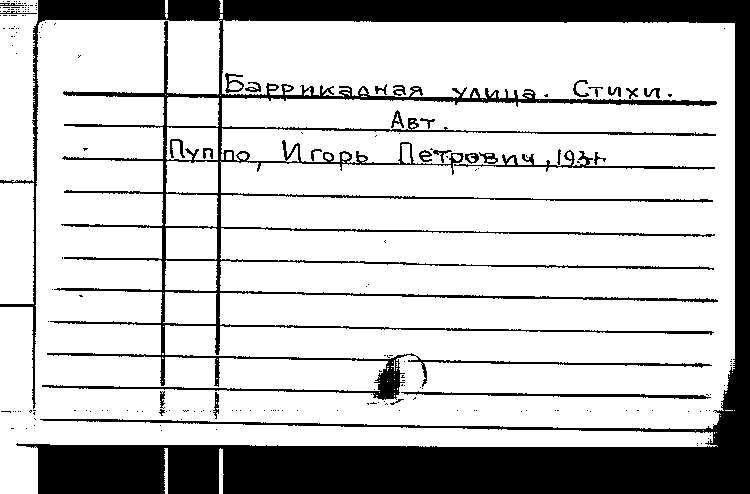 Баррикадная улица. Стихи.
Авт.
Пуппо, Игорь Петрович,